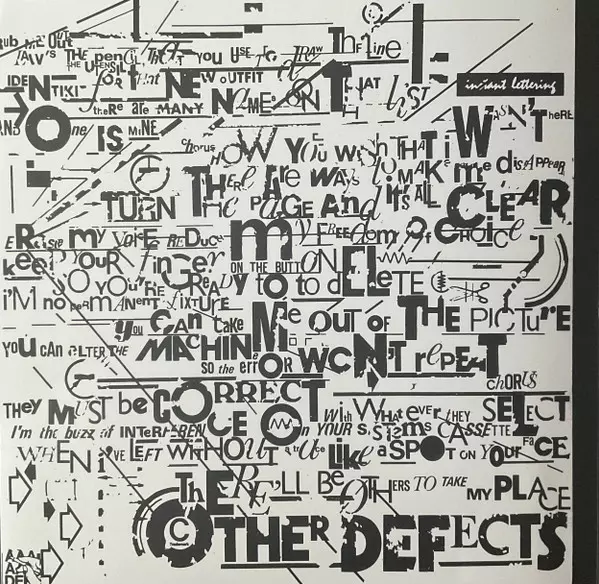 Rub me out
The Line
LAW'S THE pencil, THAT YOU USE TO DRAW
THE UTENSIL
IDENTIKIT for that NEW OUTFIT
theRe are MANY NAMES ON THAT LIST
AND One IS MiNE
instant lettering
I WASN'T HERE
chorus HOW YOU wish THAT i
THERE ARE WAYS to MAKE me disAPPEAR
TURN THe PAGE And it'S ALL CLEAR
ERase my VOiCE REDuce my FREEdom OF CHOiCe
keeP YOUR finGer ON THE BUTTON
SO YOU'RE GREADY to to dELETE
i'M no peRMANENT fiXTURE
you CAn take Me OUT OF THE PICTuRE
YOU CAN ALTER THE MACHINe
so the erroR WON'T rePEAT
chORUS
THEY MUST be CORRECT With WHATever THEY SELECT
I'm the buzz of INTERFERENCE On YOUR SYstems CASSETTE
WHEN i'VE LEFT WITHOUT a
like a SPOT ON YOUR FaCE
THERE'LL BE OTHERS TO TAKE MY PLACE
©
OTHER DEFECTS